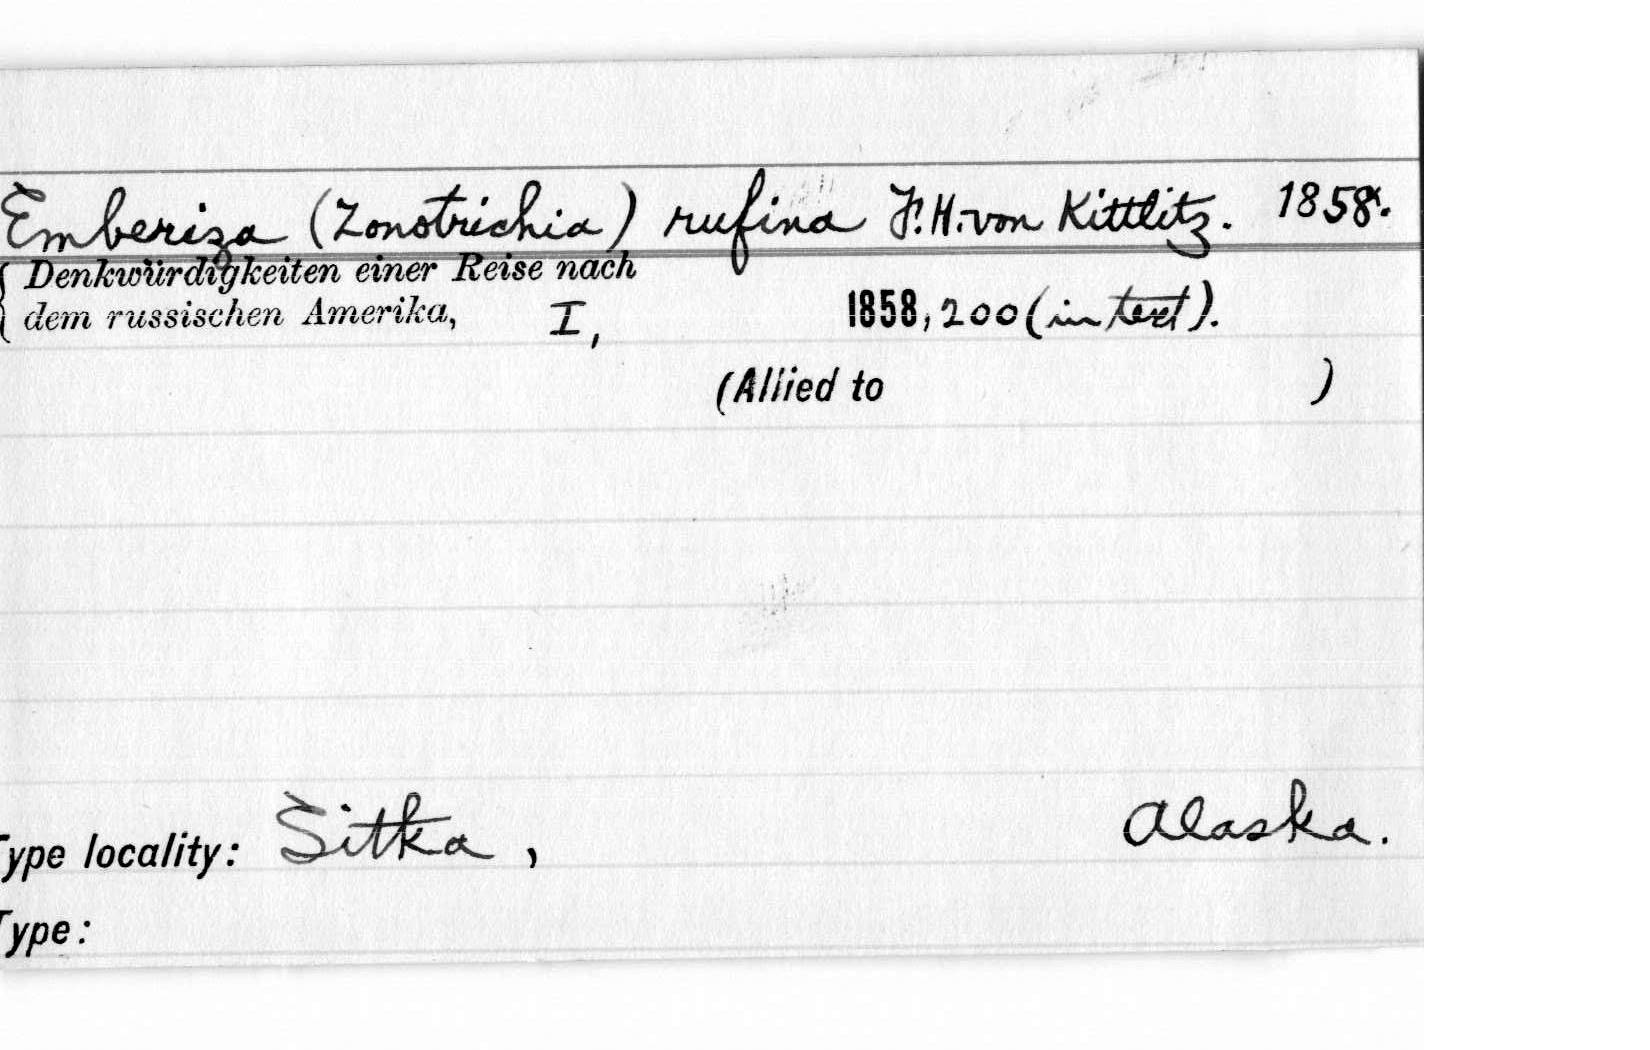 Emberiza (Zonotrichia) rufina F.H. von Kittlitz. 1858.
{ Denkwürdigkeiten einer Reise nach
dem russischen Amerika, I, 1858, 200 (in text).
(Allied to )
Type locality: Sitka, Alaska.
Type: